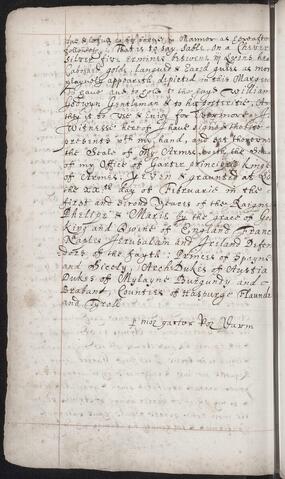 followeth. That is to say. Sable. on a Cheveron
silver five Ermines betweene iij Lyons hea
gold, Langued & Eared gules as mor
playnely appeareth depicted in this Margen
To have and to hold to the sayd William
Gentleman & to his posteritie, &
they it to Use & Enjoy for Evermore. In
Witnesse hereof I have signed these
presents wth my hand, and sett thereunto
the Seale of My Armes wth the Seale
of my Office of Garter principall Kinge
of Armes. Geven & graunted at Lo
the xxth day of Februarie in the
first and second Yeares of the Raigne
Phellipe & Marie by the grace of God
King and Queene of England Franc
Naples Jerusalem and Ireland Defen
dors of the fayth. Princes of Spayne
and Sicely, ArchDukes of Austria
Dukes of Mylayne Burgundy and
Brabant, Counties of Haspurge Flaunde
and Tyroll
p moy garter Roy Darm